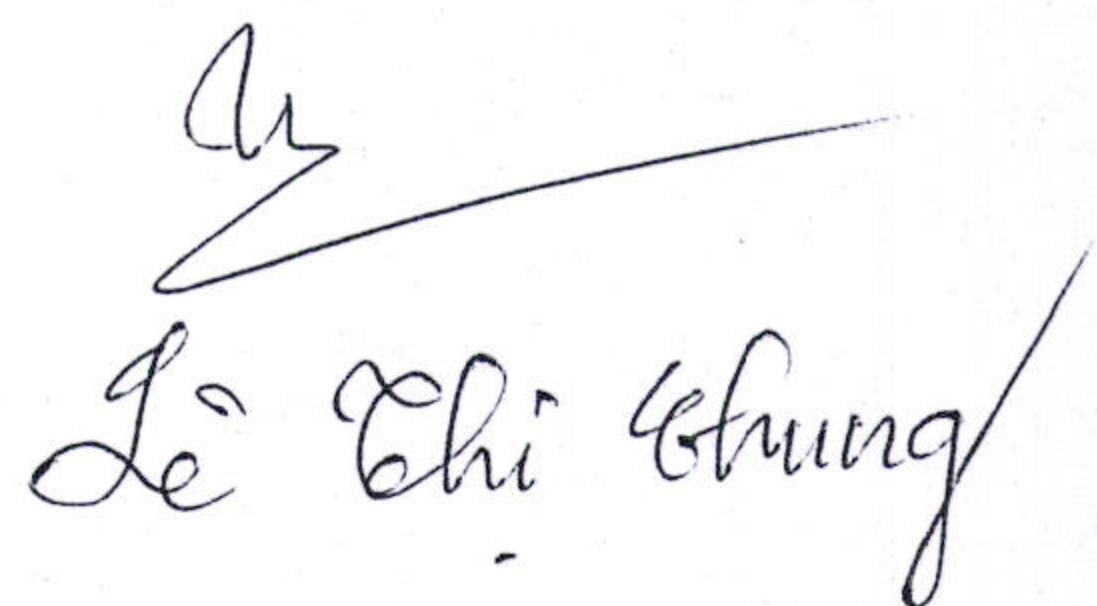 Lê Thị Chung